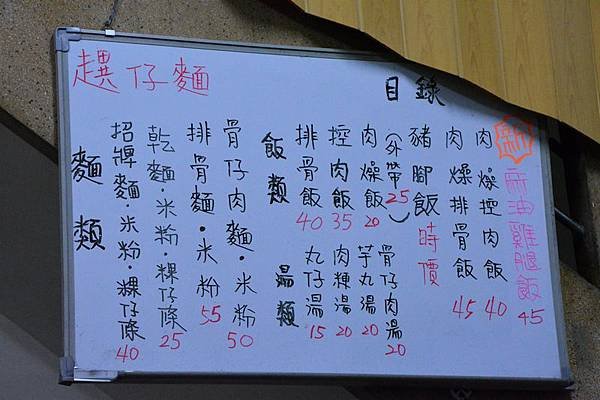 趙仔麵
目錄
新 麻油雞腿飯 45
肉燥控肉飯 40
肉燥排骨飯 45
豬腳飯 時價
(外帶25)
肉燥飯 20
控肉飯 35
排骨飯 40
飯類
骨仔肉湯 20
芋丸湯 20
肉粳湯 20
丸仔湯 15
湯類
骨仔肉麵・米粉 50
排骨麵・米粉 55
乾麵・米粉・粿仔條 25
招牌麵・米粉・粿仔條 40
麵類